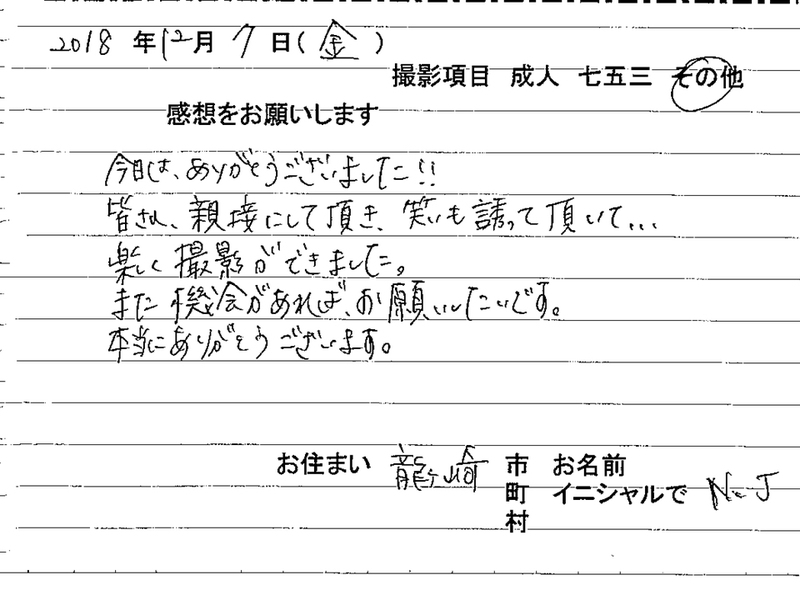 2018 年 12月 7 日 ( 金 )
撮影項目 成人 七五三 その他
感想をお願いします
今日は、ありがとうございました!!
皆さん、親接にして頂き、笑いも誘って頂いて...
楽しく撮影ができました。
また機会があれば、お願いしたいです。
本当にありがとうございます。
お住まい 龍ケ崎 市 お名前
町 イニシャルで N.J
村